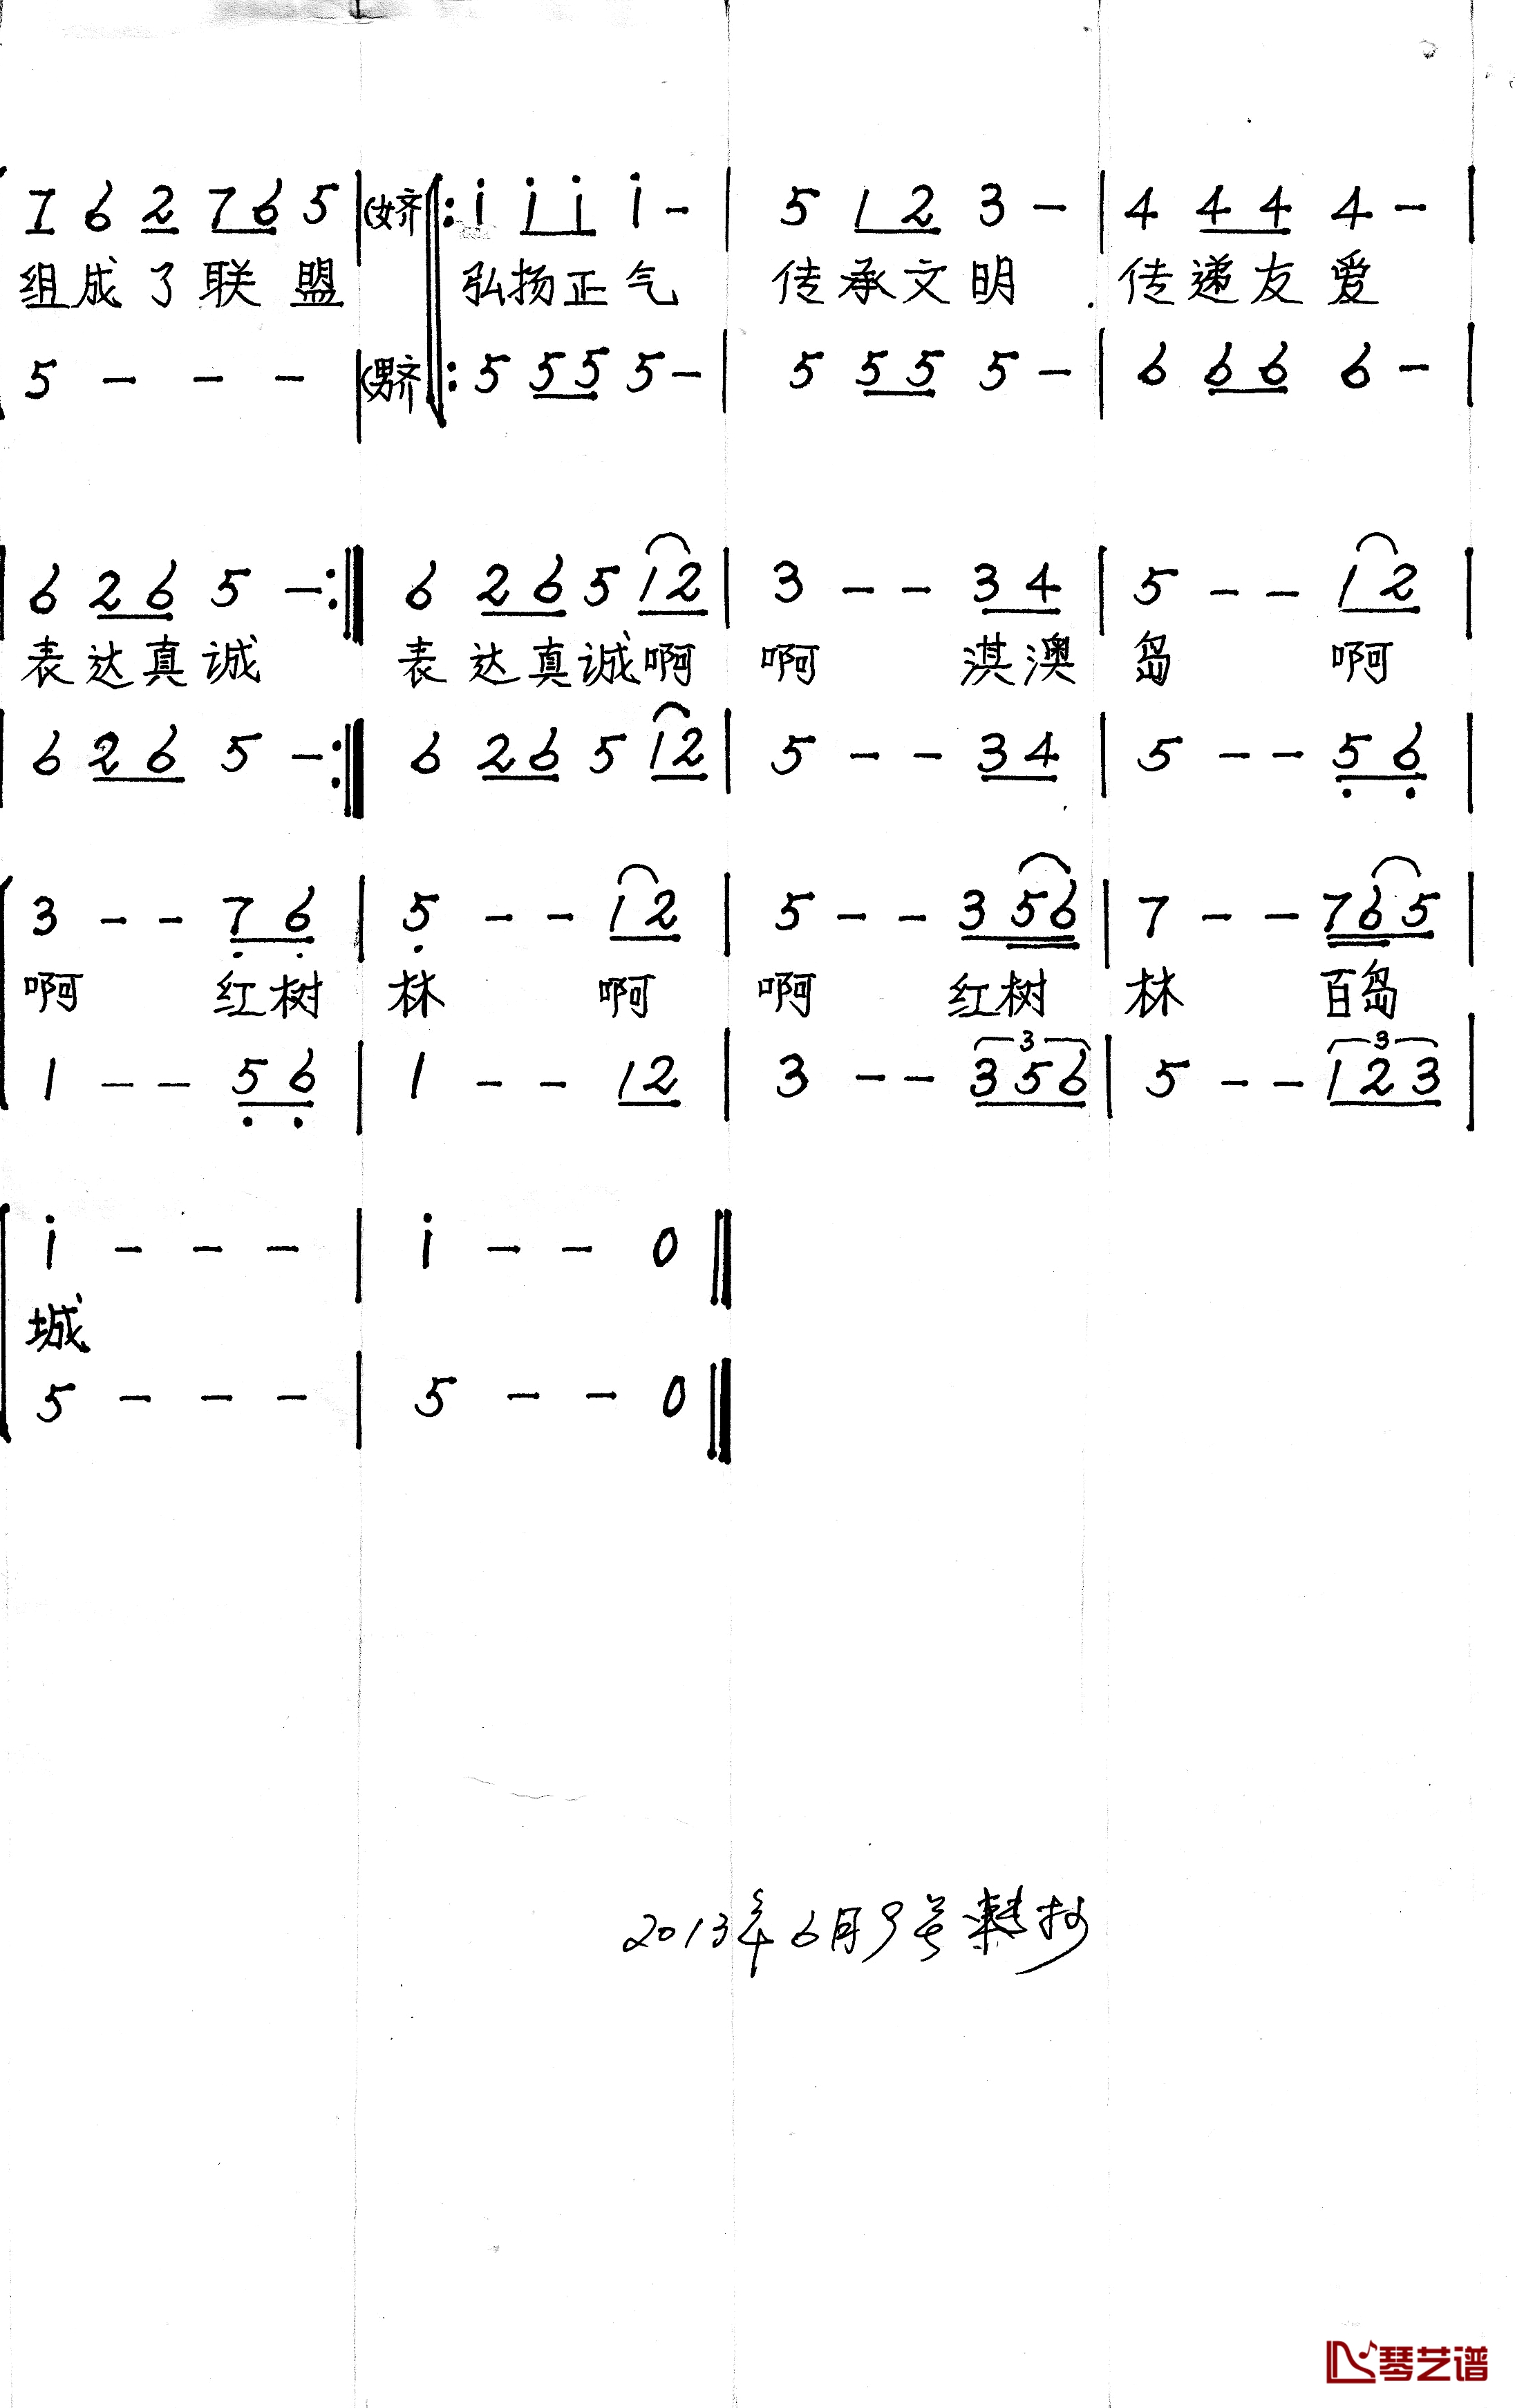 7 6 2 7 6 5 | (女齐 ‖: i i i i - | 5 1 2 3 - | 4 4 4 4 - |
组成了联盟 弘扬正气 传承文明 传递友爱
5 - - - | (男齐 ‖: 5 5 5 5 - | 5 5 5 5 - | 6 6 6 6 - |
| 6 2 6 5 - :‖ 6 2 6 5 1 2 | 3 - - 3 4 | 5 - - 1 2 |
表达真诚 表达真诚啊 啊 淇澳 岛 啊
| 6 2 6 5 - :‖ 6 2 6 5 1 2 | 5 - - 3 4 | 5 - - 5 6 |
3 - - 7 6 | 5 - - 1 2 | 5 - - 3 5 6 | 7 - - 7 6 5 |
啊 红树 林 啊 啊 红树 林 百岛
3 3
1 - - 5 6 | 1 - - 1 2 | 3 - - 3 5 6 | 5 - - 1 2 3 |
i - - - | i - - 0 ‖
城
5 - - - | 5 - - 0 ‖
2013年6月9号 抄
琴艺谱